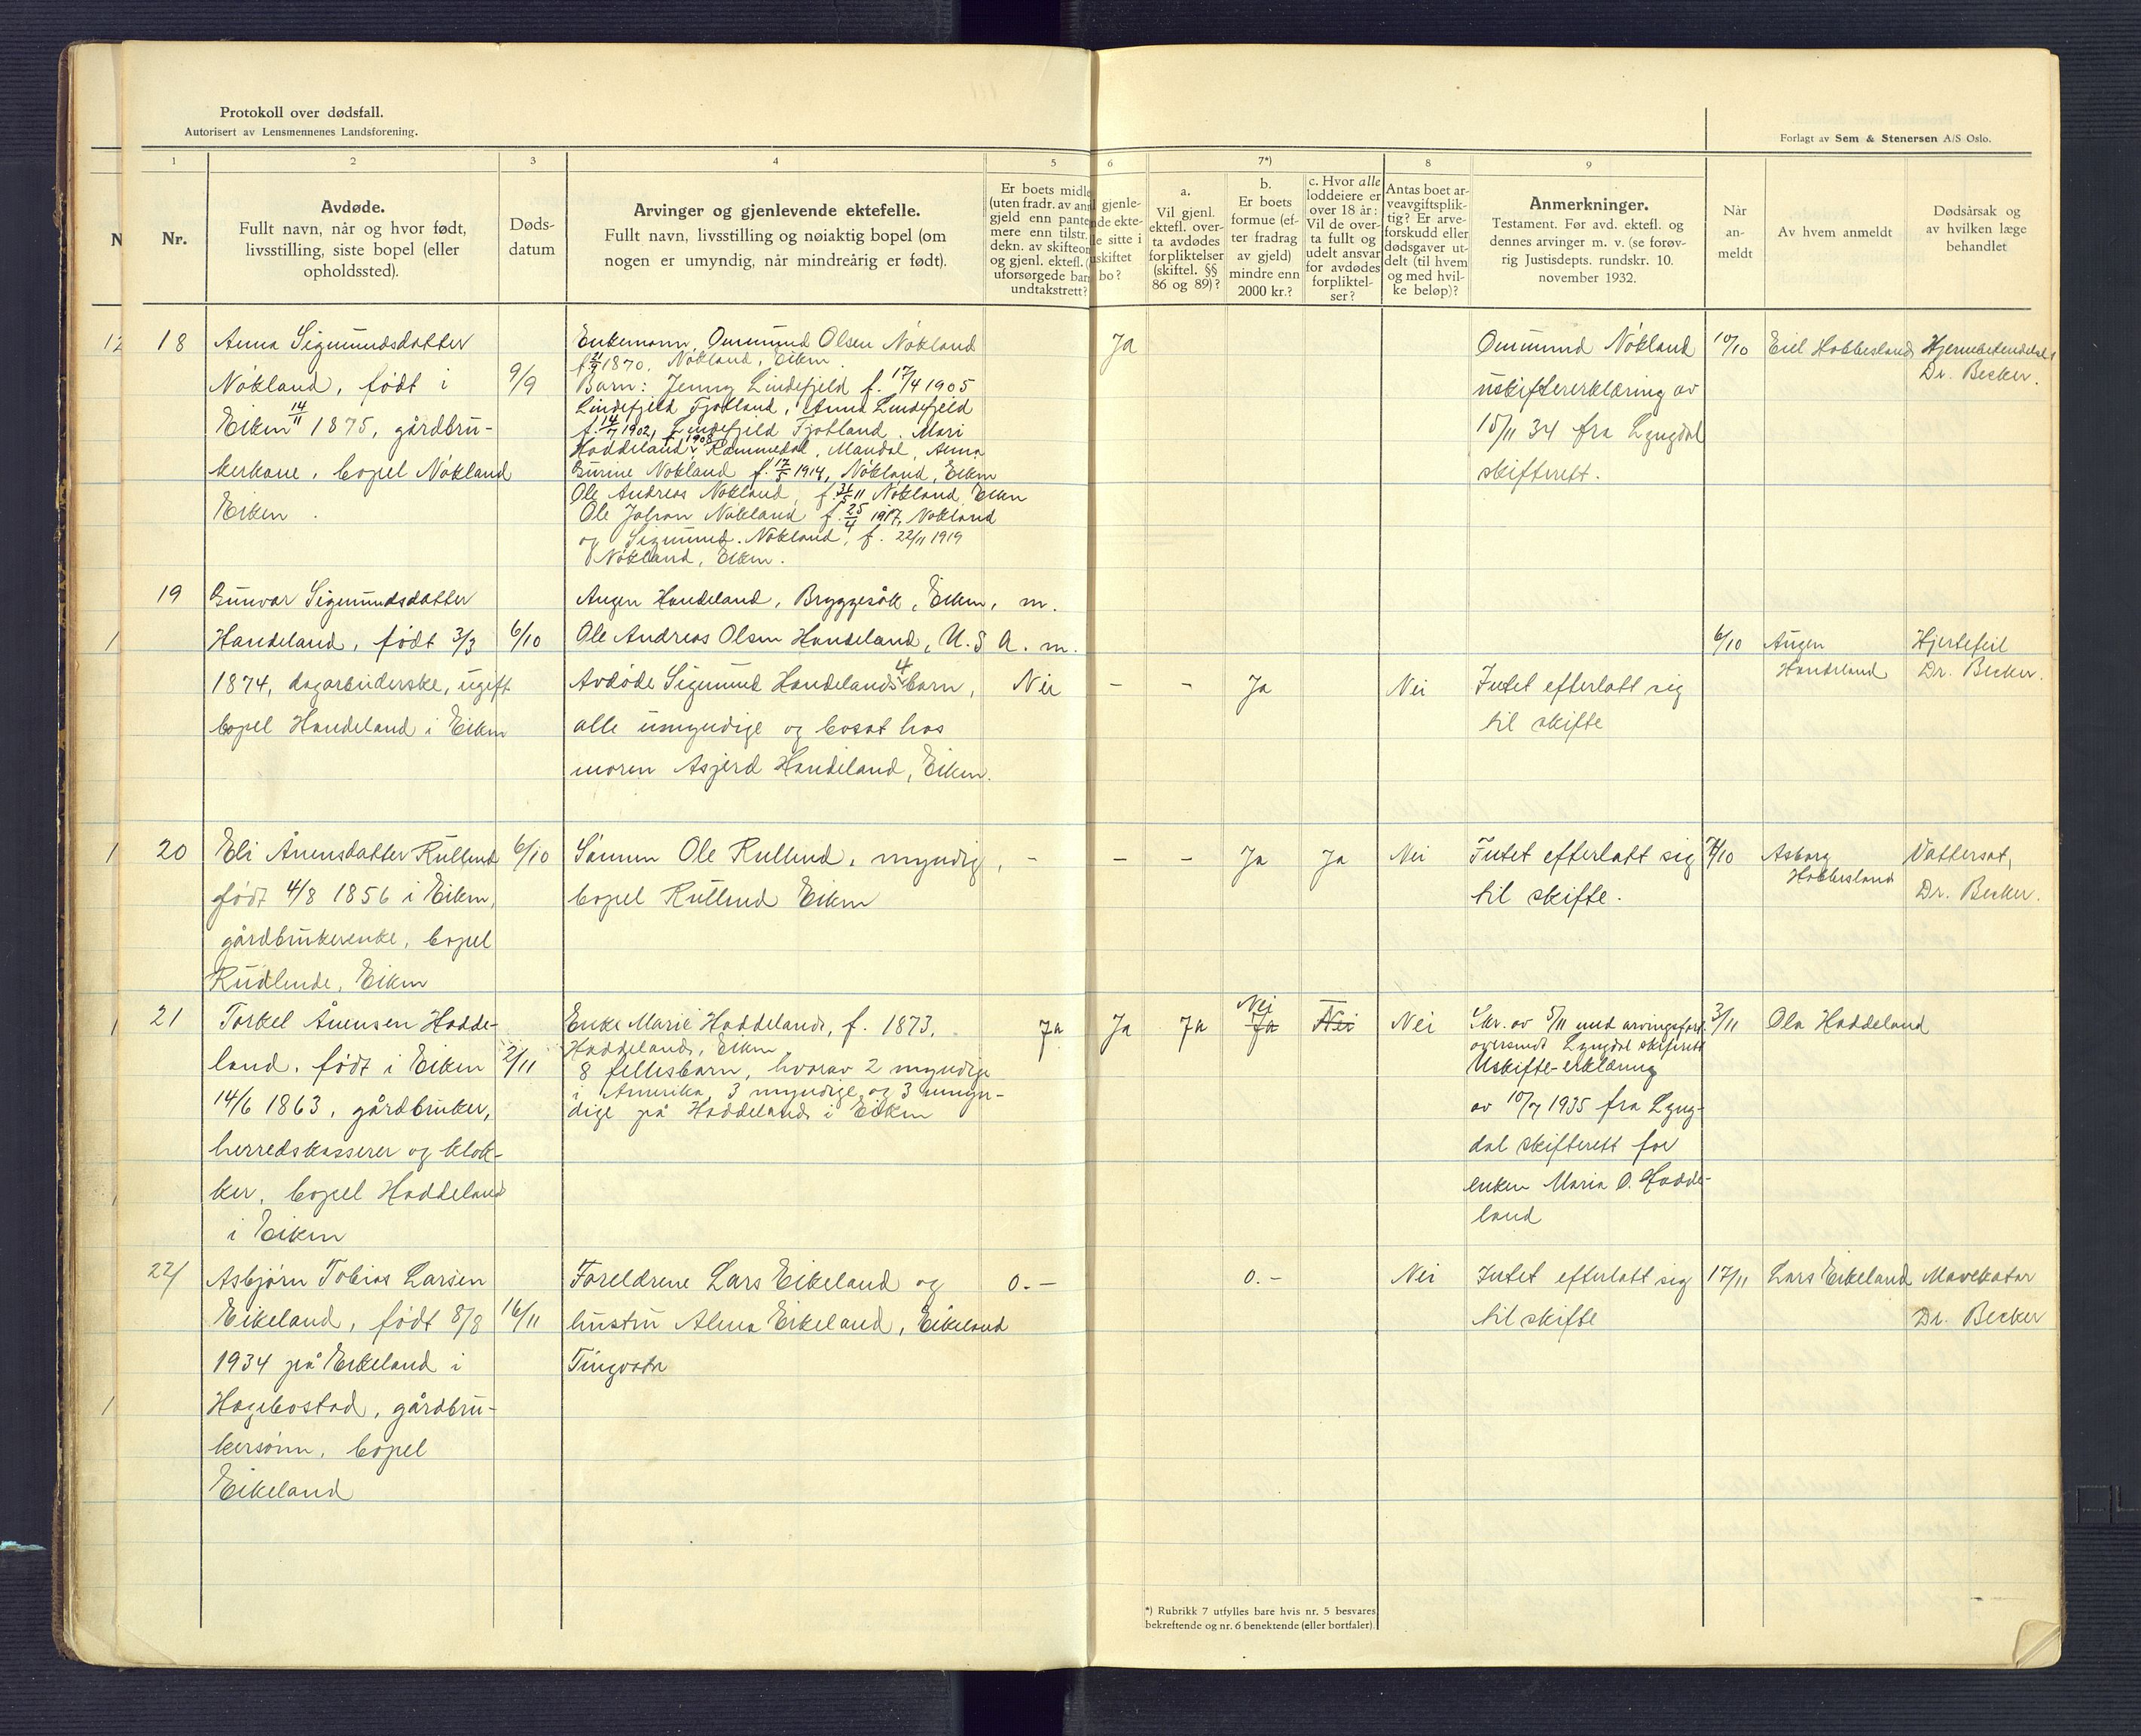 Protokoll over dødsfall.
Autorisert av Lensmennenes Landsforening.
Forlagt av Sem & Stenersen A/S Oslo.
1
2
3
4
5
6
7*)
8
9
Nr.
Avdøde.
Fullt navn, når og hvor født,
livsstilling, siste bopel (eller
opholdssted).
Døds-
datum
Arvinger og gjenlevende ektefelle.
Fullt navn, livsstilling og nøiaktig bopel (om
nogen er umyndig, når mindreårig er født).
Er boets midle
(uten fradr. av ann
gjeld enn pante
mere enn tilstr.
dekn. av skifteom
og gjenl. ektef.
uforsørgede bar
undtakstrett?
gjenle-
nde ekte-
le sitte i
uskiftet
bo?
a.
Vil gjenl.
ektefl. over-
ta avdødes
forpliktelser
(skiftel. §§
86 og 89)?
b.
Er boets
formue (ef-
ter fradrag
av gjeld)
mindre enn
2000 kr.?
c. Hvor alle
loddeiere er
over 18 år:
Vil de over-
ta fullt og
udelt ansvar
for avdødes
forpliktel-
ser?
Antas boet ar-
veavgiftsplik-
tig? Er arve-
forskudd eller
dødsgaver ut-
delt (til hvem
og med hvil-
ke beløp)?
Anmerkninger.
Testament. Før avd. ektefl. og
dennes arvinger m. v. (se forøv-
rig Justisdepts. rundskr. 10.
november 1932.
Når
an-
meldt
Av hvem anmeldt
Dødsårsak og
av hvilken læge
behandlet
18
Anna Sigmundsdatter
Nökland, født i
Eiken 14/11 1875, gårdbru-
kerkone, bopel Nökland
Eiken.
9/9
Enkemann, Ommund Olsen Nökland
1870. Nökland, Eiken
Barn: Jenny Lindefjeld f. 17/4 1905
Lindefjeld Fjotland, Anna Lindefjeld
f. 14/7 1902, Lindefjeld Fjotland. Mari
Haddeland f 1908, Mandal, Anna
Gurine Nökland f. 17/5 1914, Nökland, Eiken
Ole Andreas Nökland, f. 31/5 11 Nökland Eiken
Ole Johan Nökland f. 25/4 1917, Nökland
og Sigmund Nökland, f. 22/11 1919
Nökland, Eiken.
Ja
Ommund Nökland
uskiftererklæring av
15/11 34 fra Lyngdal
skifterett.
10/10
Eiel Hobbesland
Hjernebetendelse
Dr. Becker.
19
Gunvor Sigmundsdatter
Handeland, født 3/3
1874, dagarbeiderske, ugift
bopel Handeland i Eiken
6/10
Augen Handeland, Bryggesåk, Eiken, m.
Ole Andreas Olsen Handeland, U. S. A. m.
Avdöde Sigmund Handelands 4 barn,
alle umyndige og bosat hos
moren Asjerd Handeland, Eiken.
Nei
-
-
Ja
Nei
Intet efterlatt sig
til skifte
6/10
Augen
Handeland
Hjertefeil
Dr. Becker.
20
Eli Ånensdatter Rullend
født 4/8 1856 i Eiken,
gårdbrukerenke, bopel
Rudlende, Eiken
6/10
Sönnen Ole Rullend, myndig,
bopel Rullend Eiken
-
-
-
Ja
Ja
Nei
Intet efterlatt sig
til skifte.
7/10
Asborg
Hobbesland
Vattersot,
Dr. Becker.
21
Torkel Ånensen Hadde-
land, født i Eiken
14/6 1863, gårdbruker,
herredskasserer og klok-
ker, bopel Haddeland
i Eiken
2/11
Enke Marie Haddeland, f. 1873,
Haddeland, Eiken
8 fellesbarn, hvorav 2 myndige
i Amerika, 3 myndige og 3 umyn-
dige på Haddeland i Eiken
Ja
Ja
Ja
Nei
Ja
Nei
Nei
Skr. av 5/11 med arvingsfort.
oversendt Lyngdal skifterett
Uskifte-erklæring
av 10/7 1935 fra Lyng-
dal skifterett for
enken Maria O. Hadde-
land
3/11
Ola Haddeland
22
Asbjørn Tobias Larsen
Eikeland, født 8/8
1934 på Eikeland i
Hægebostad, gårdbru-
kersönn, bopel
Eikeland
16/11
Foreldrene Lars Eikeland og
hustru Alma Eikeland, Eikeland
Tingvatn
0.-
0.-
Nei
Intet efterlatt sig
til skifte
17/11
Lars Eikeland
Mavekatar
Dr. Becker
*) Rubrikk 7 utfylles bare hvis nr. 5 besvares
bekreftende og nr. 6 benektende (eller bortfaler).